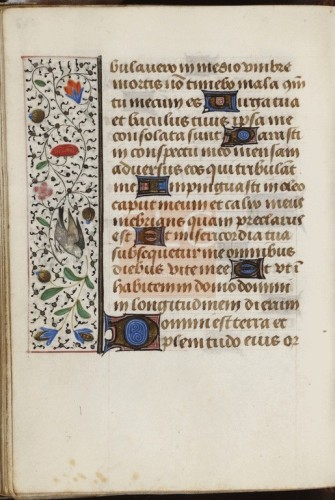 bulavero in medio vmbre
mortis nō timebo mala qm̄
tu mecum es Uirga tua
et baculus tuus ipsa me
consolata sunt Parasti
in conspectu meo mensam
adversus eos qui tribulāt
me Impinguasti in oleo
caput meum et calix meus
inebrians quam preclarus
est Et misericordia tua
subsequetur me omnibus
diebus vite mee Et ut ī
habitem in domo domini
in longitudinem dierum
Domini est terra et
plenitudo eius or